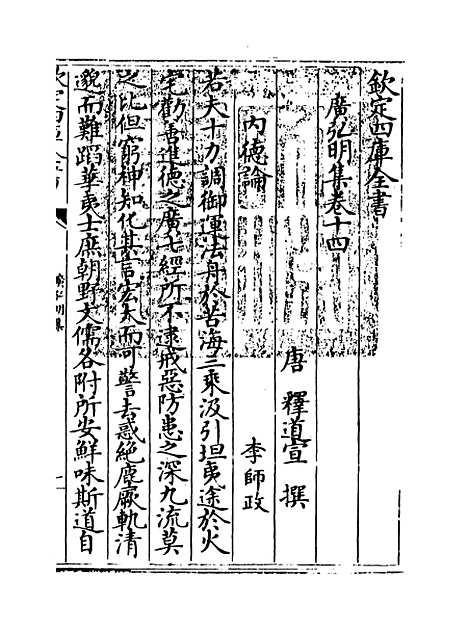 欽定四庫全書
廣弘明集卷十四
唐 釋道宣 撰
內德論
李師政
若夫十力調御運法舟於苦海三乘汲引坦夷途於火
宅勸善進德之廣七經所不逮戒惡防患之深九流莫
之比但窮神知化其言宏大而可警去惑絶塵厥軌清
邈而難蹈華夷士庶朝野文儒各附所安鮮味斯道自
欽定四庫全書
廣弘明集